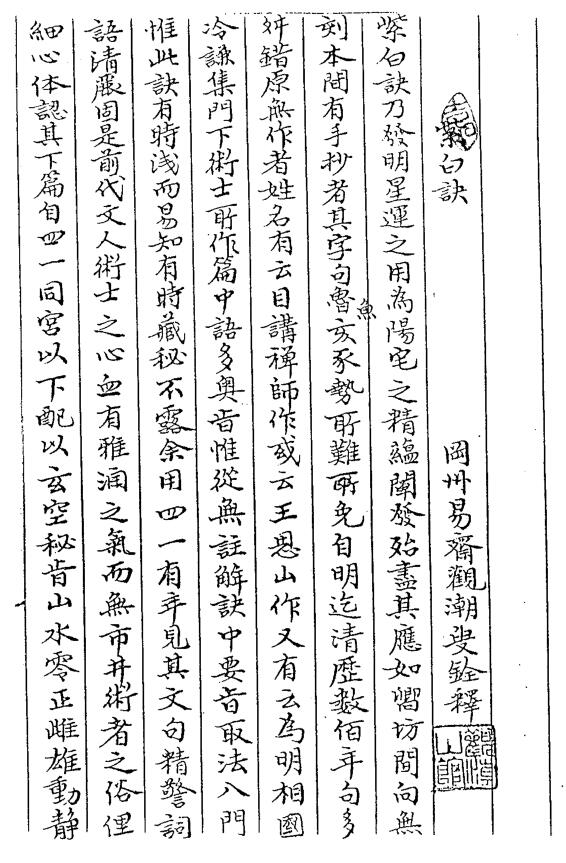 紫白訣
岡州易齋觀潮叟銓釋
紫白訣乃發明星運之用為陽宅之精蘊闡發殆盡其應如響坊間向無
刻本間有手抄者其字句魯魚亥豕勢所難所免自明迄清歷数佰年句多
舛錯原無作者姓名有云目講禅師作或云王思山作又有云為明相國
冷謙集門下術士所作篇中語多奥旨惟從無註解訣中要旨取法八門
惟此訣有時浅而易知有時藏秘不露余用四一有年見其文句精警詞
語清麗固是前代文人術士之心血有雅润之氣而無市井術者之俗俚
細心体認其下篇自四一同宮以下配以玄空秘旨山水零正雌雄動静